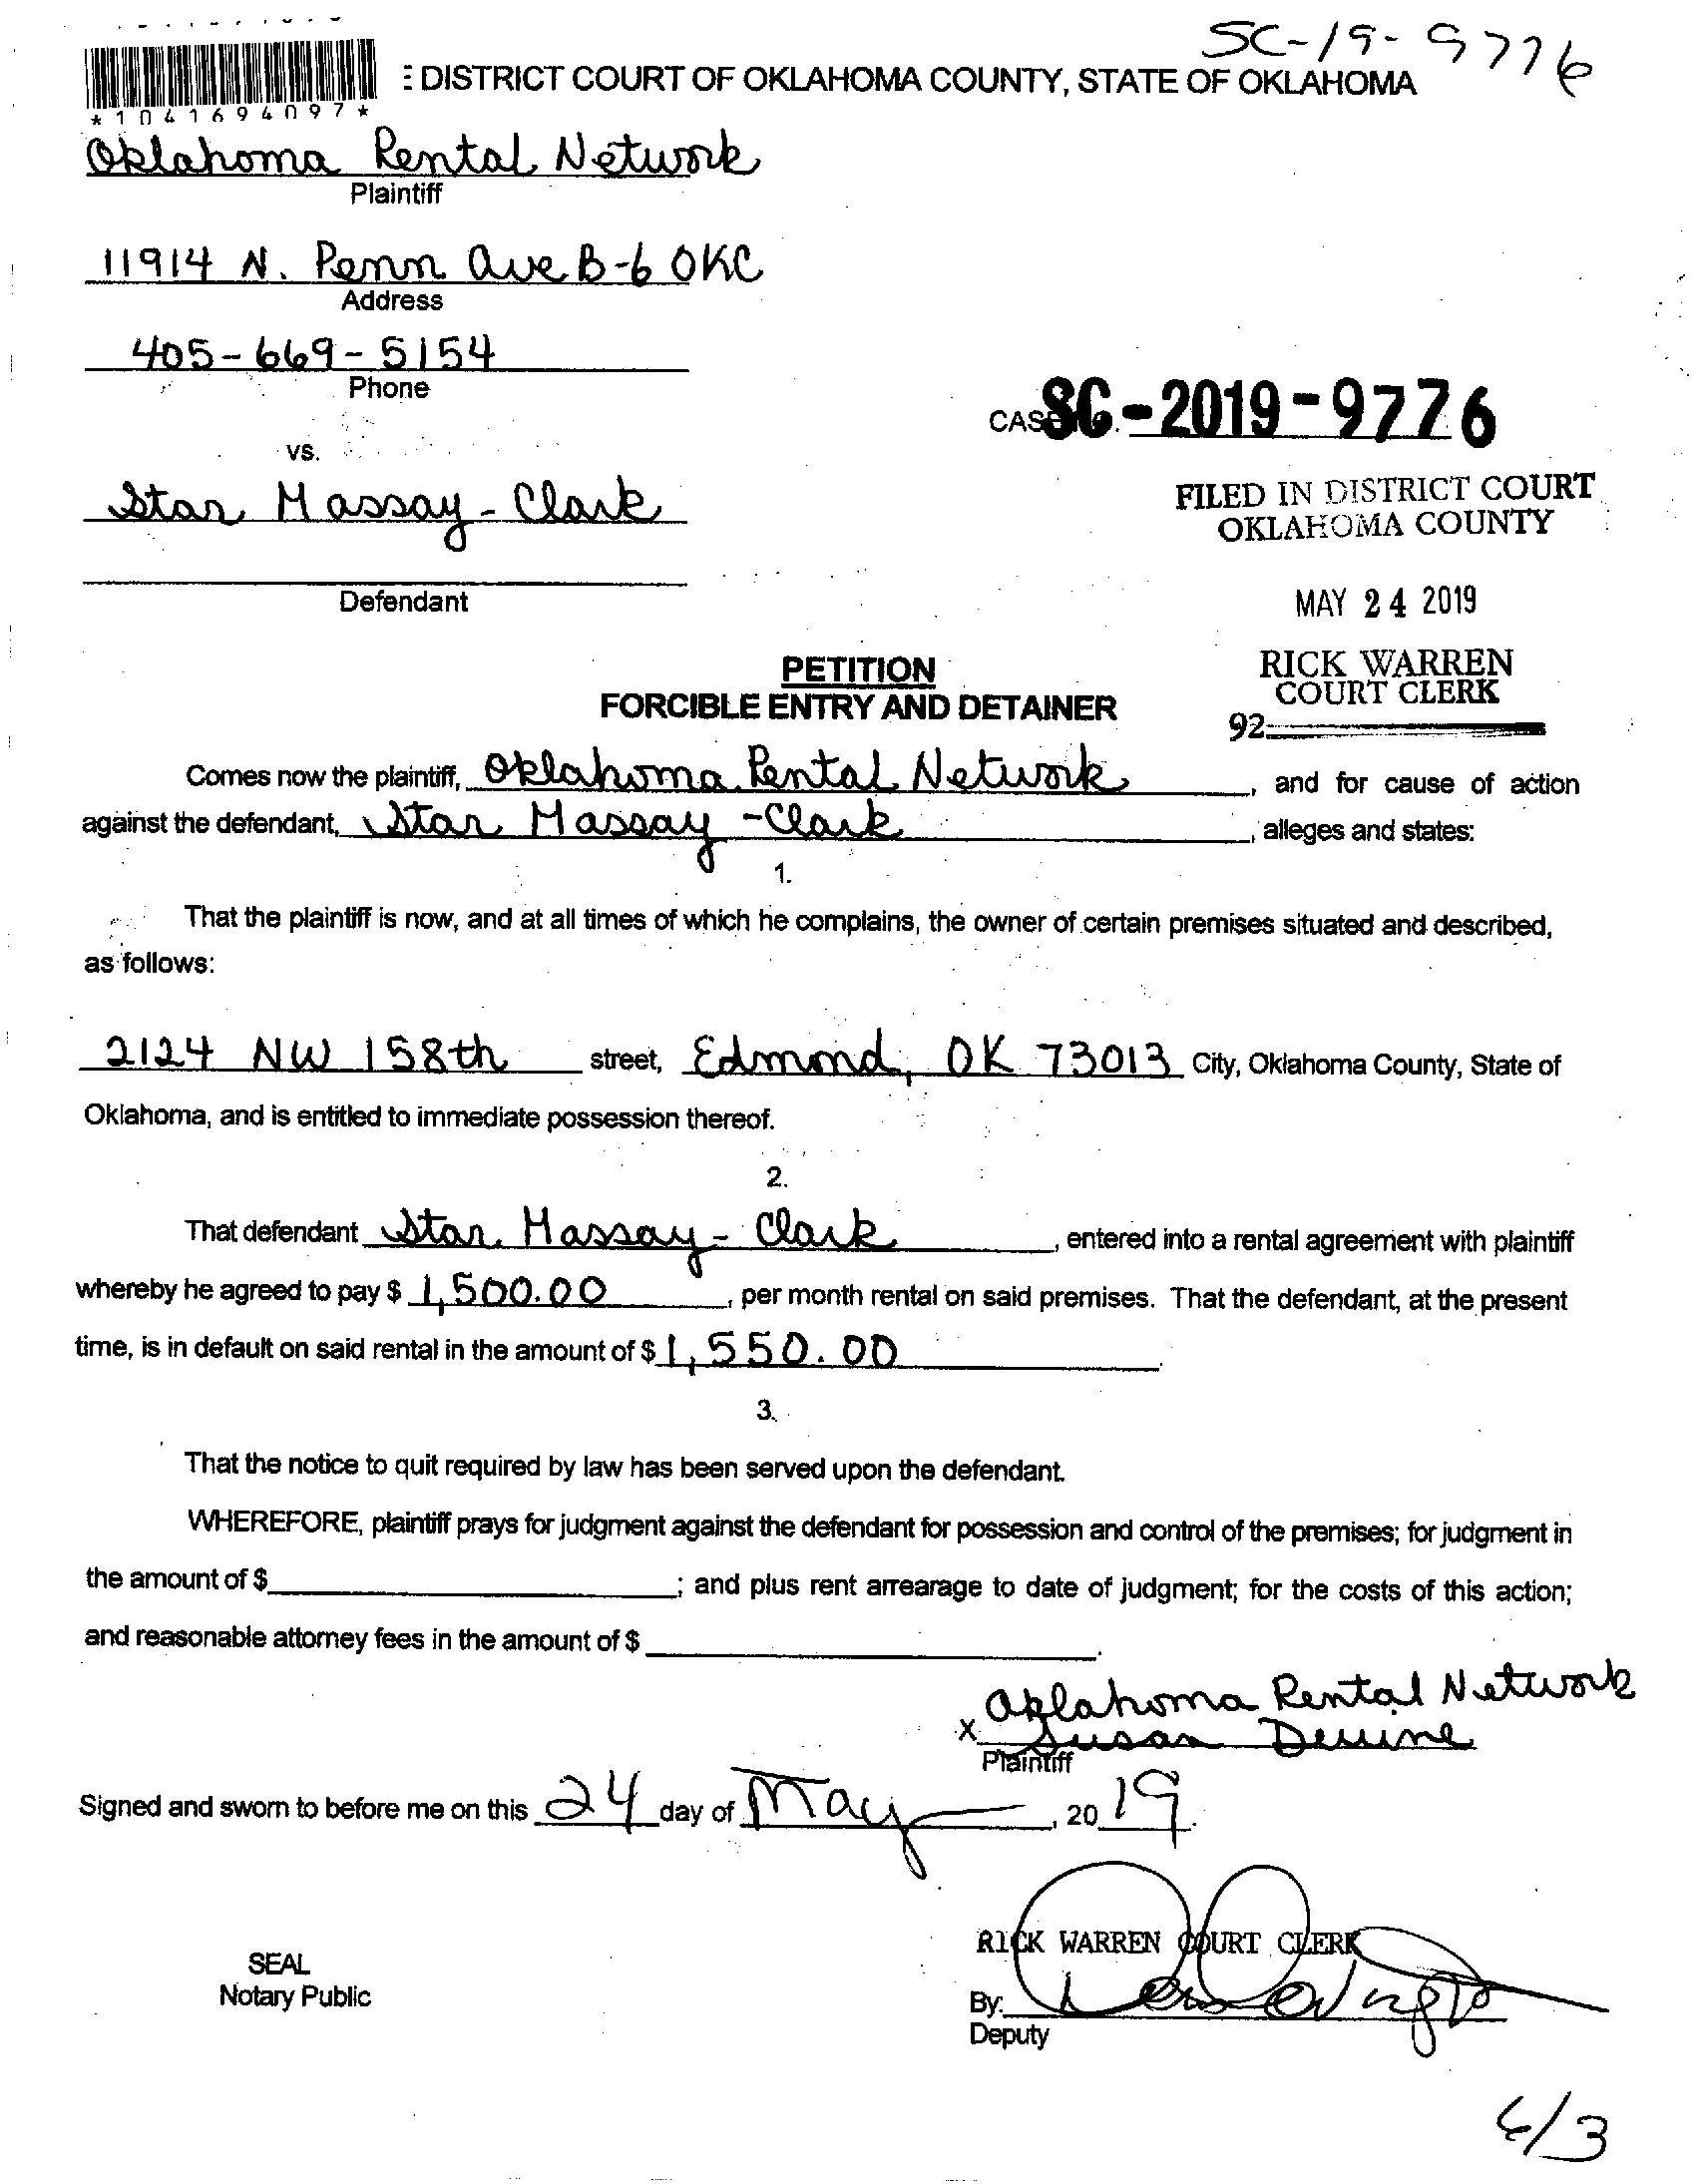 SC-19-9776
DISTRICT COURT OF OKLAHOMA COUNTY, STATE OF OKLAHOMA
*1041694097*
Oklahoma Rental Network
Plaintiff
11914 N. Penn Ave B-6 OKC
Address
405-669-5154
Phone
CAS SC-2019-9776
vs.
Star Massay-Clark
FILED IN DISTRICT COURT
OKLAHOMA COUNTY
Defendant
MAY 24 2019
PETITION
RICK WARREN
COURT CLERK
FORCIBLE ENTRY AND DETAINER
92
Comes now the plaintiff, Oklahoma Rental Network, and for cause of action
against the defendant, Star Massay-Clark, alleges and states:
1.
That the plaintiff is now, and at all times of which he complains, the owner of certain premises situated and described,
as follows:
2124 NW 158th street, Edmond, OK 73013 City, Oklahoma County, State of
Oklahoma, and is entitled to immediate possession thereof.
2.
That defendant Star Massay-Clark, entered into a rental agreement with plaintiff
whereby he agreed to pay $ 1,500.00, per month rental on said premises. That the defendant, at the present
time, is in default on said rental in the amount of $ 1,550.00
3.
That the notice to quit required by law has been served upon the defendant.
WHEREFORE, plaintiff prays for judgment against the defendant for possession and control of the premises; for judgment in
the amount of $ ; and plus rent arrearage to date of judgment; for the costs of this action;
and reasonable attorney fees in the amount of $ .
Oklahoma Rental Network
X Susan Devine
Plaintiff
Signed and sworn to before me on this 24 day of May, 20 19.
RICK WARREN COURT CLERK
SEAL
Notary Public
By:
Deputy
6/3